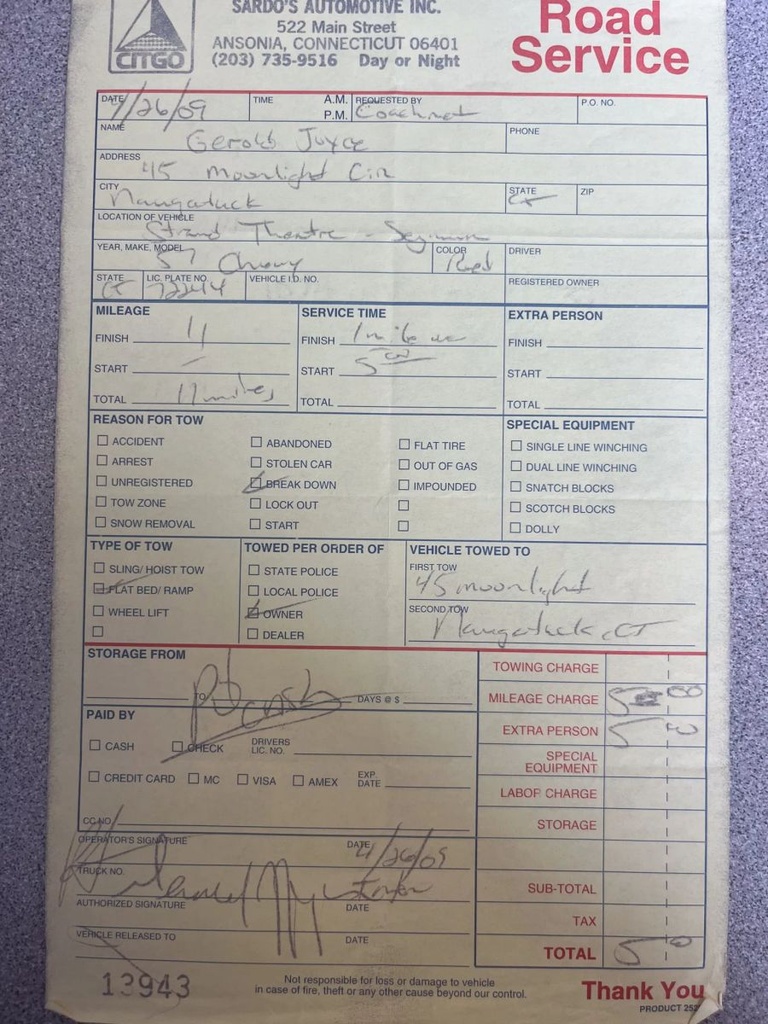 CITGO
SARDO'S AUTOMOTIVE INC.
522 Main Street
ANSONIA, CONNECTICUT 06401
(203) 735-9516 Day or Night
Road
Service
DATE /26/09 TIME A.M. P.M. REQUESTED BY Coachnet P.O. NO.
NAME Gerold Joyce PHONE
ADDRESS 45 Moonlight Cir
CITY Naugatuck STATE CT ZIP
LOCATION OF VEHICLE Strand Theatre - Seymour
YEAR, MAKE, MODEL 57 Chevy COLOR Red DRIVER
STATE CT LIC. PLATE NO. VEHICLE I.D. NO. REGISTERED OWNER
MILEAGE SERVICE TIME EXTRA PERSON
FINISH 11 FINISH FINISH
START START 5 00 START
TOTAL 11 miles TOTAL TOTAL
REASON FOR TOW SPECIAL EQUIPMENT
ACCIDENT ABANDONED FLAT TIRE SINGLE LINE WINCHING
ARREST STOLEN CAR OUT OF GAS DUAL LINE WINCHING
UNREGISTERED BREAK DOWN IMPOUNDED SNATCH BLOCKS
TOW ZONE LOCK OUT SCOTCH BLOCKS
SNOW REMOVAL START DOLLY
TYPE OF TOW TOWED PER ORDER OF VEHICLE TOWED TO
SLING/ HOIST TOW STATE POLICE FIRST TOW 45 moonlight
FLAT BED/ RAMP LOCAL POLICE
WHEEL LIFT OWNER SECOND TOW Naugatuck, CT
DEALER
STORAGE FROM TOWING CHARGE
TO Pd cash DAYS @ $ MILEAGE CHARGE
PAID BY EXTRA PERSON
CASH CHECK DRIVERS LIC. NO. SPECIAL EQUIPMENT
CREDIT CARD MC VISA AMEX EXP. DATE LABOR CHARGE
CC NO. STORAGE
OPERATOR'S SIGNATURE DATE /26/09
TRUCK NO. SUB-TOTAL
AUTHORIZED SIGNATURE DATE TAX
VEHICLE RELEASED TO DATE TOTAL 5 0
13943
Not responsible for loss or damage to vehicle
in case of fire, theft or any other cause beyond our control.
Thank You
PRODUCT 252